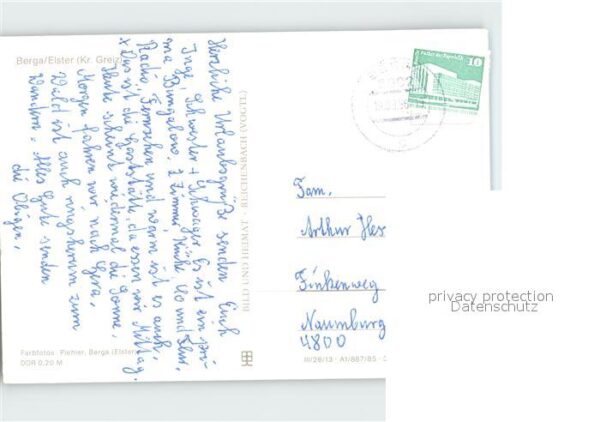 Berga/Elster (Kr. Greiz)
Herzliche Urlaubsgrüße senden Euch
Inge, Schwester + Schwager. Es ist ein pri-
ma Bungalow, 2 Zimmer, Küche, Wo und Flur,
Radio, Fernsehen und warm ist es auch.
x Das ist die Gaststätte, da essen wir Mittag.
Heute scheint wiedermal die Sonne,
Morgen fahren wir nach Gera,
Wald ist auch ringsherum zum
Wandern. Alles Gute senden
die Obigen,
BILD UND HEIMAT · REICHENBACH (VOGTL)
Farbfotos Piehler, Berga (Elster)
DDR 0,20 M
III/26/13 · A1/887/85
10
Fam.
Arthur Hes
Finkenweg
Naumburg
4800
privacy protection
Datenschutz